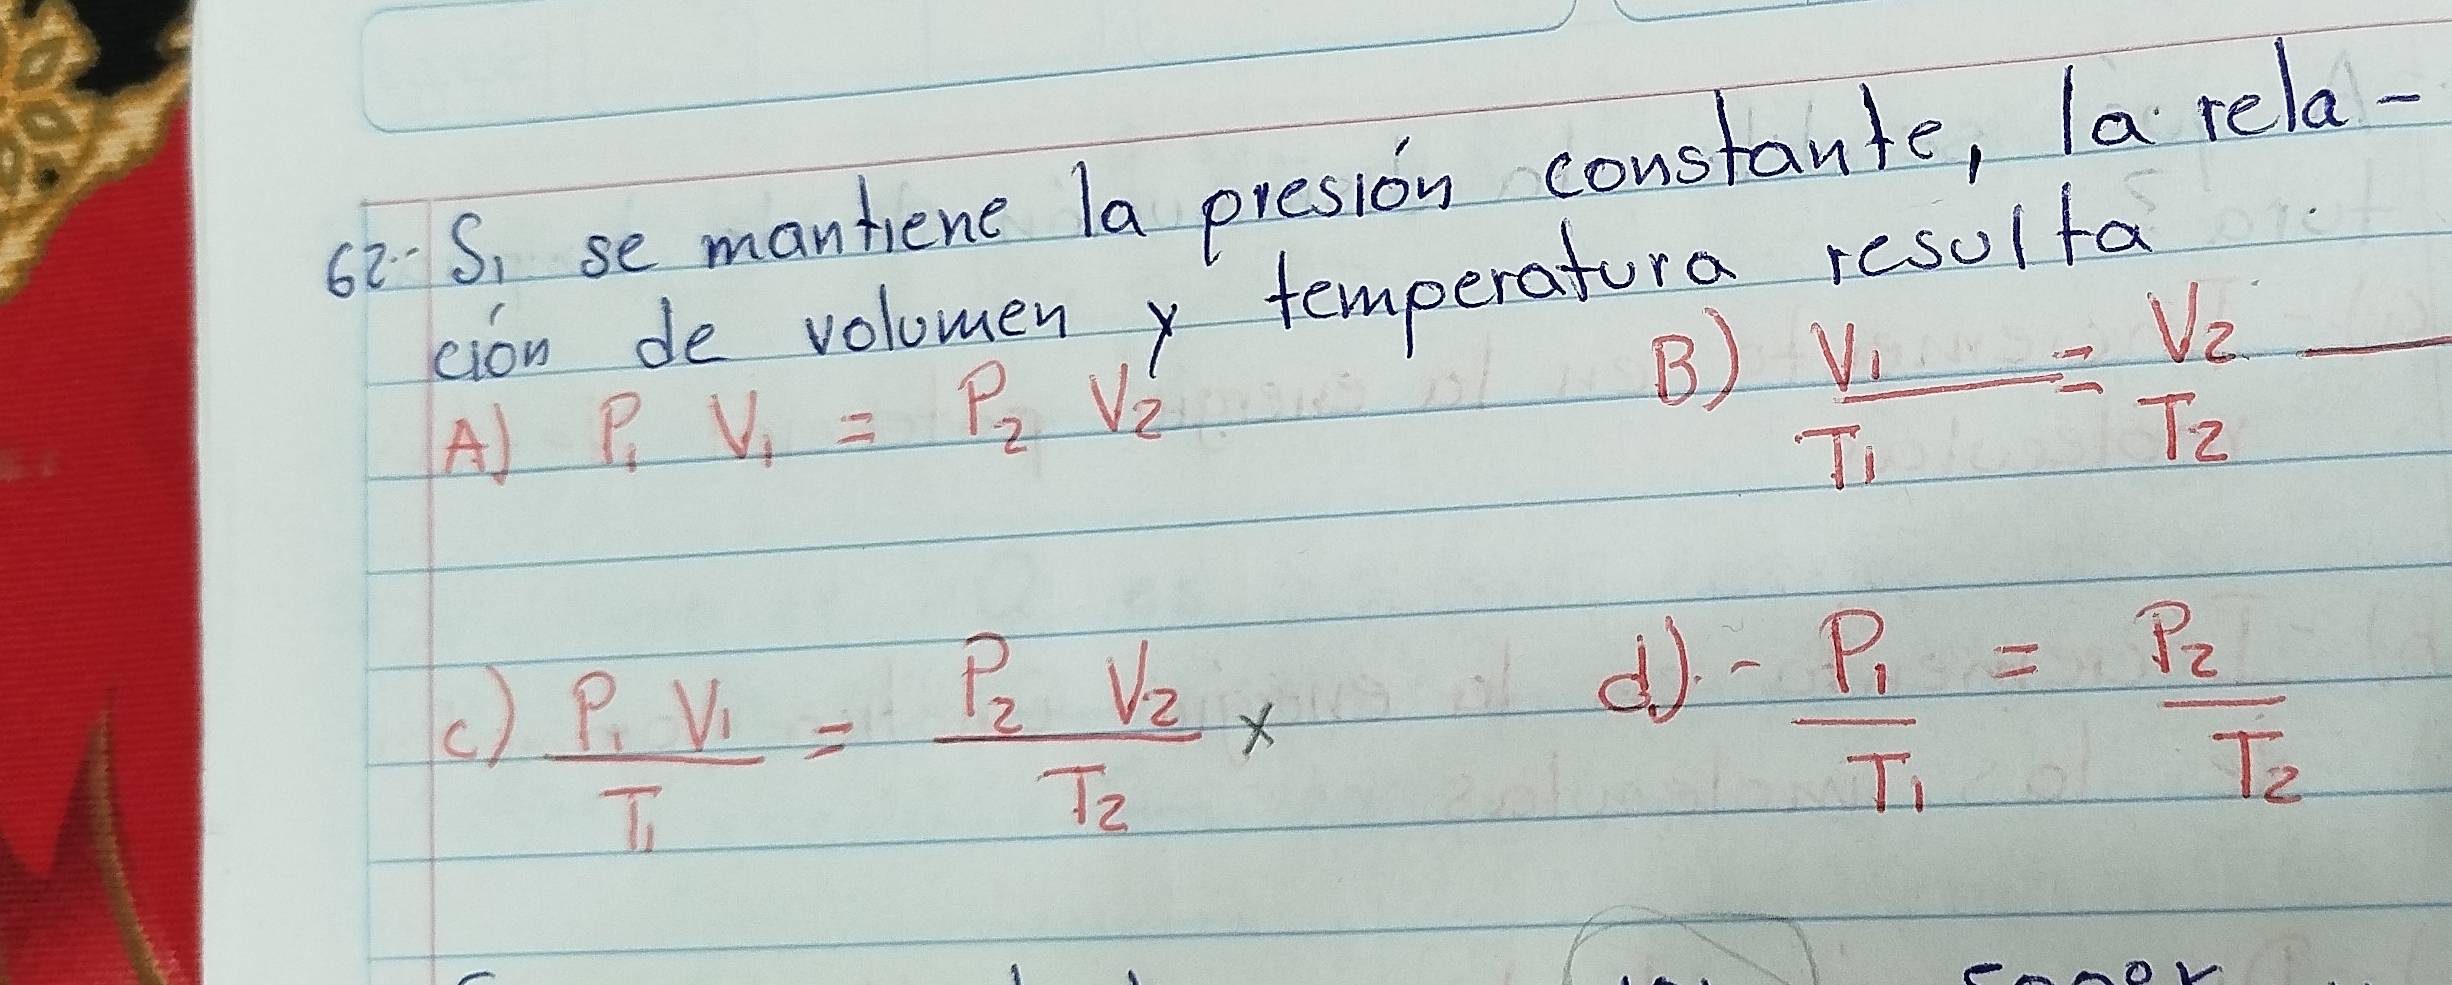 62.- Si se mantiene la presión constante, la rela-
ción de volumen y temperatura resulta
A) P₁ V₁ = P₂ V₂
B) V₁/T₁ = V₂/T₂
c) P₁ V₁/T₁ = P₂ V₂/T₂ x
d).- P₁/T₁ = P₂/T₂